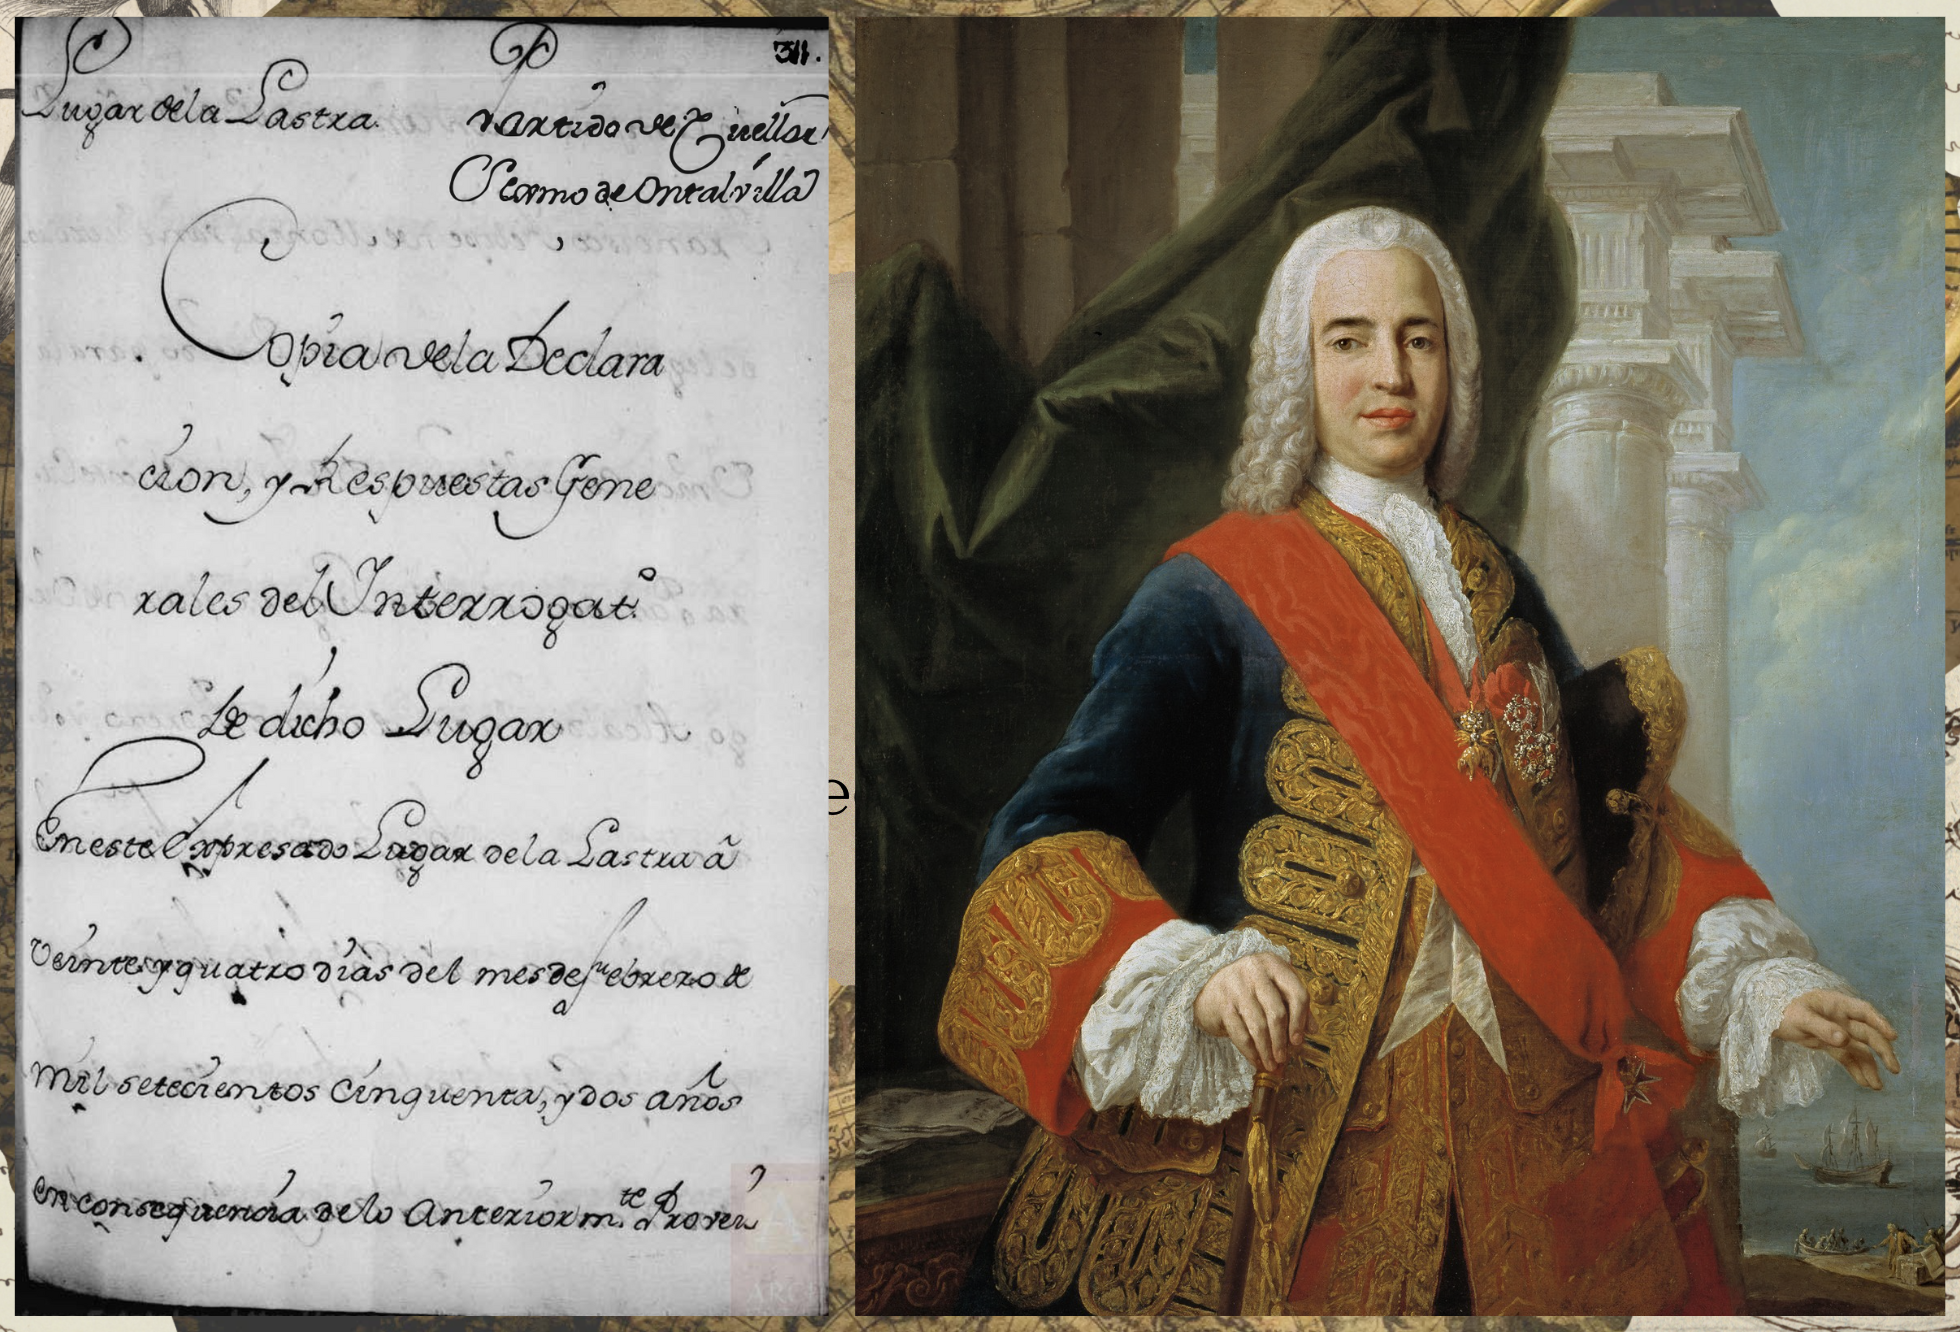 311.
Lugar de la Lastra.
Partido de Cuellar
Sexmo de Ontalvilla
Copia de la Declara
cion, y Respuestas Gene
rales del Interrogat.º
De dicho Lugar
En este Expresado Lugar de la Lastra â
Veinte y quatro dias del mes de Febrero de
Mil setecientos Cinquenta, y dos años
en consequencia de lo Anteriorm.te Provei
e
ARC